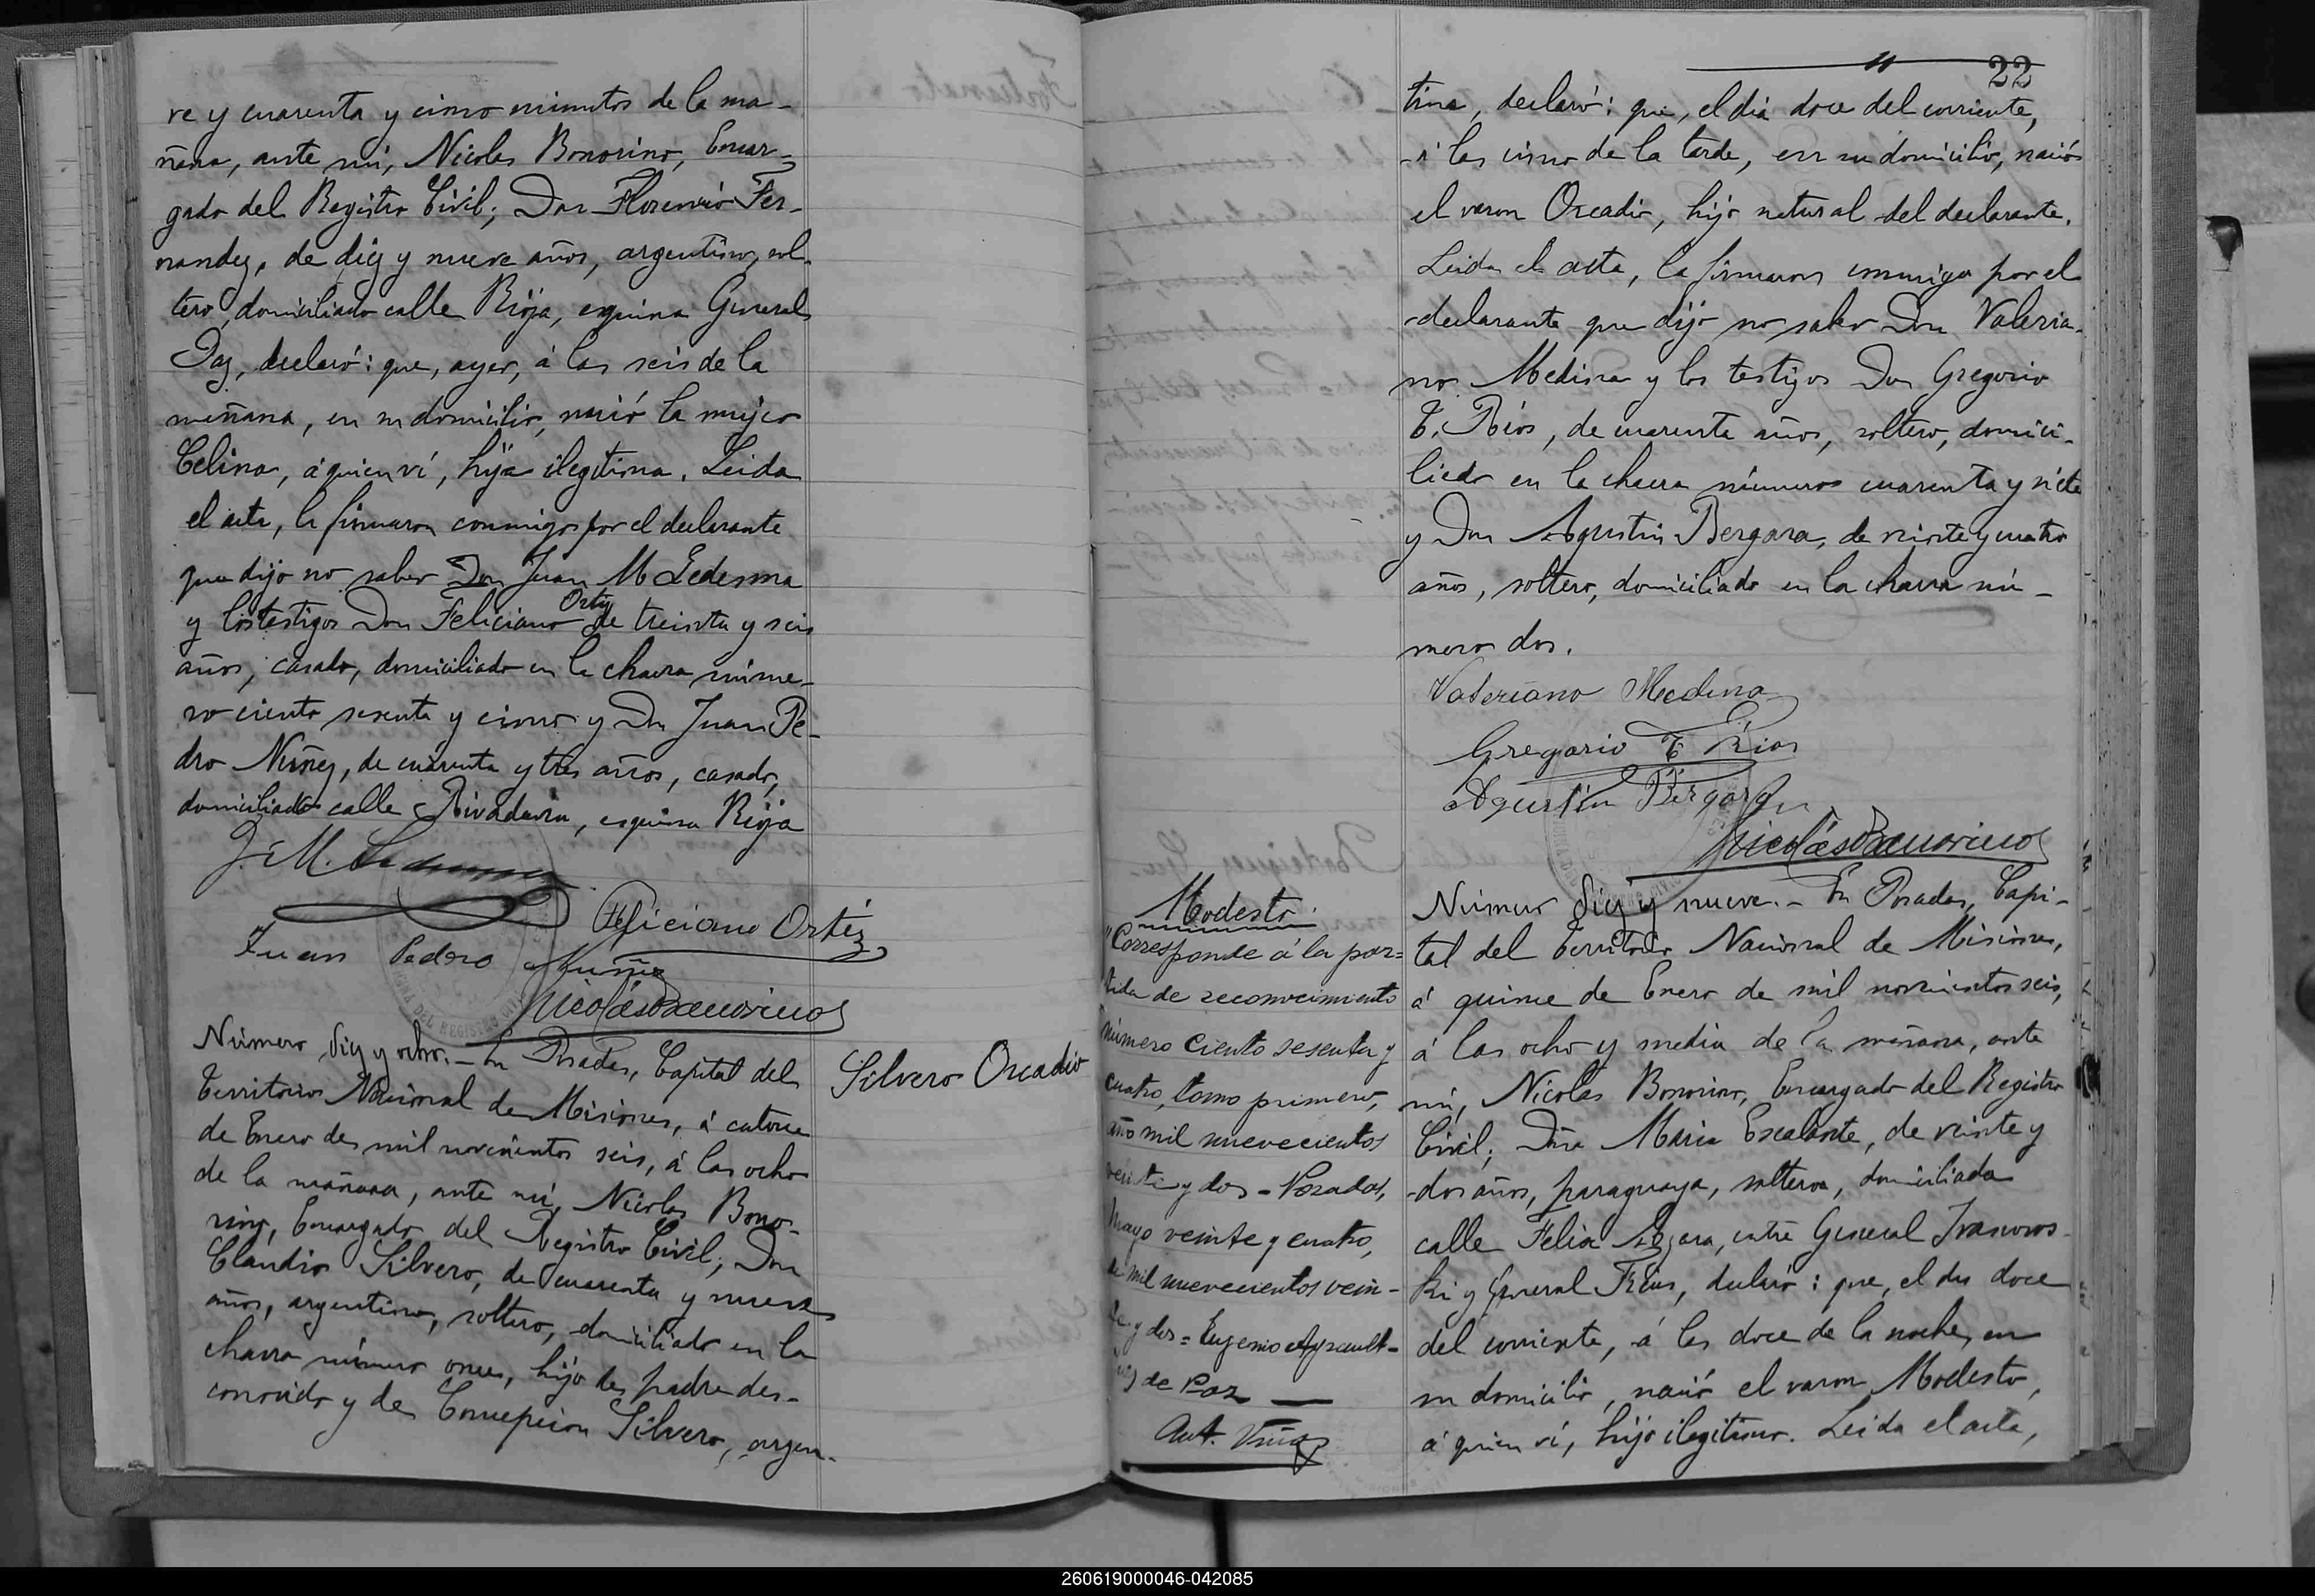 ve y cuarenta y cinco minutos de la ma-
ñana, ante mí, Nicolas Bonorino, Encar-
gado del Registro Civil; Don Florencio Fer-
nandez, de diez y nueve años, argentino, sol-
tero, domiciliado calle Rioja, esquina General
Paz, declaró: que, ayer, á las seis de la
mañana, en su domicilio, nació la mujer
Celina, á quien ví, hija ilegitima. Leida
el acta, la firmaron conmigo por el declarante
que dijo no saber Don Juan M Ledesma
y los testigos Don Feliciano Ortiz de treinta y seis
años, casado, domiciliado en la chacra núme-
ro ciento sesenta y cinco y Don Juan Pe-
dro Nuñez, de cuarenta y tres años, casado,
domiciliado calle Rivadavia, esquina Rioja
J. M. Ledesma
Feliciano Ortiz
Juan Pedro Nuñez
Nicolás Bonorino
Número diez y ocho.- En Posadas, Capital del
Territorio Nacional de Misiones, á catorce
de Enero de mil novecientos seis, á las ocho
de la mañana, ante mí, Nicolas Bono-
rino, Encargado del Registro Civil; Don
Claudio Silvero, de cuarenta y nueve
años, argentino, soltero, domiciliado en la
chacra número once, hijo de padre des-
conocido y de Concepcion Silvero, argen-
Silvero Orcadio
22
tina, declaró: que, el dia doce del corriente,
á las cinco de la tarde, en su domicilio, nació
el varon Orcadio, hijo natural del declarante.
Leida el acta, la firmaron conmigo por el
declarante que dijo no saber Don Valeria-
no Medina y los testigos Don Gregorio
T. Rios, de cuarenta años, soltero, domici-
liado en la chacra número cuarenta y siete
y Don Agustin Bergara, de veinte y cuatro
años, soltero, domiciliado en la chacra nú-
mero dos.
Valeriano Medina
Gregorio T Rios
Agustin Bergara
Nicolás Bonorino
Modesto
"Corresponde á la par=
tida de reconocimiento
número ciento sesenta y
cuatro, tomo primero,
año mil nuevecientos
veinte y dos - Posadas,
Mayo veinte y cuatro,
de mil nuevecientos vein-
te y dos = Eugenio
Juez de Paz
Ant.
Número diez y nueve.- En Posadas, Capi-
tal del Territorio Nacional de Misiones,
á quince de Enero de mil novecientos seis,
á las ocho y media de la mañana, ante
mí, Nicolas Bonorino, Encargado del Registro
Civil; Doña Maria Escalante, de veinte y
dos años, paraguaya, soltera, domiciliada
calle Felix Azara, entre General Ivanows-
ki y General Frias, declaró: que, el dia doce
del corriente, á las doce de la noche, en
su domicilio, nació el varon Modesto,
á quien ví, hijo ilegitimo. Leida el acta,
260619000046-042085